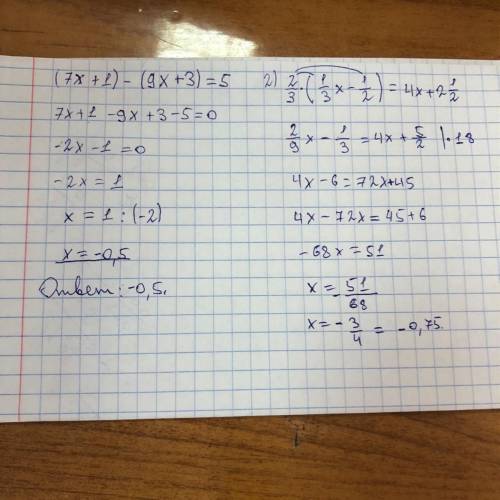 (7x+1) - (9x+3) = 5
7x+1 -9x+3-5=0
-2x-1=0
-2x = 1
x = 1 : (-2)
x = -0,5
Ответ: -0,5.
2) 2/3 · (1/3 x - 1/2) = 4x + 2 1/2
2/9 x - 1/3 = 4x + 5/2 | · 18
4x - 6 = 72x + 45
4x - 72x = 45 + 6
-68x = 51
x = - 51/68
x = - 3/4 = -0,75.